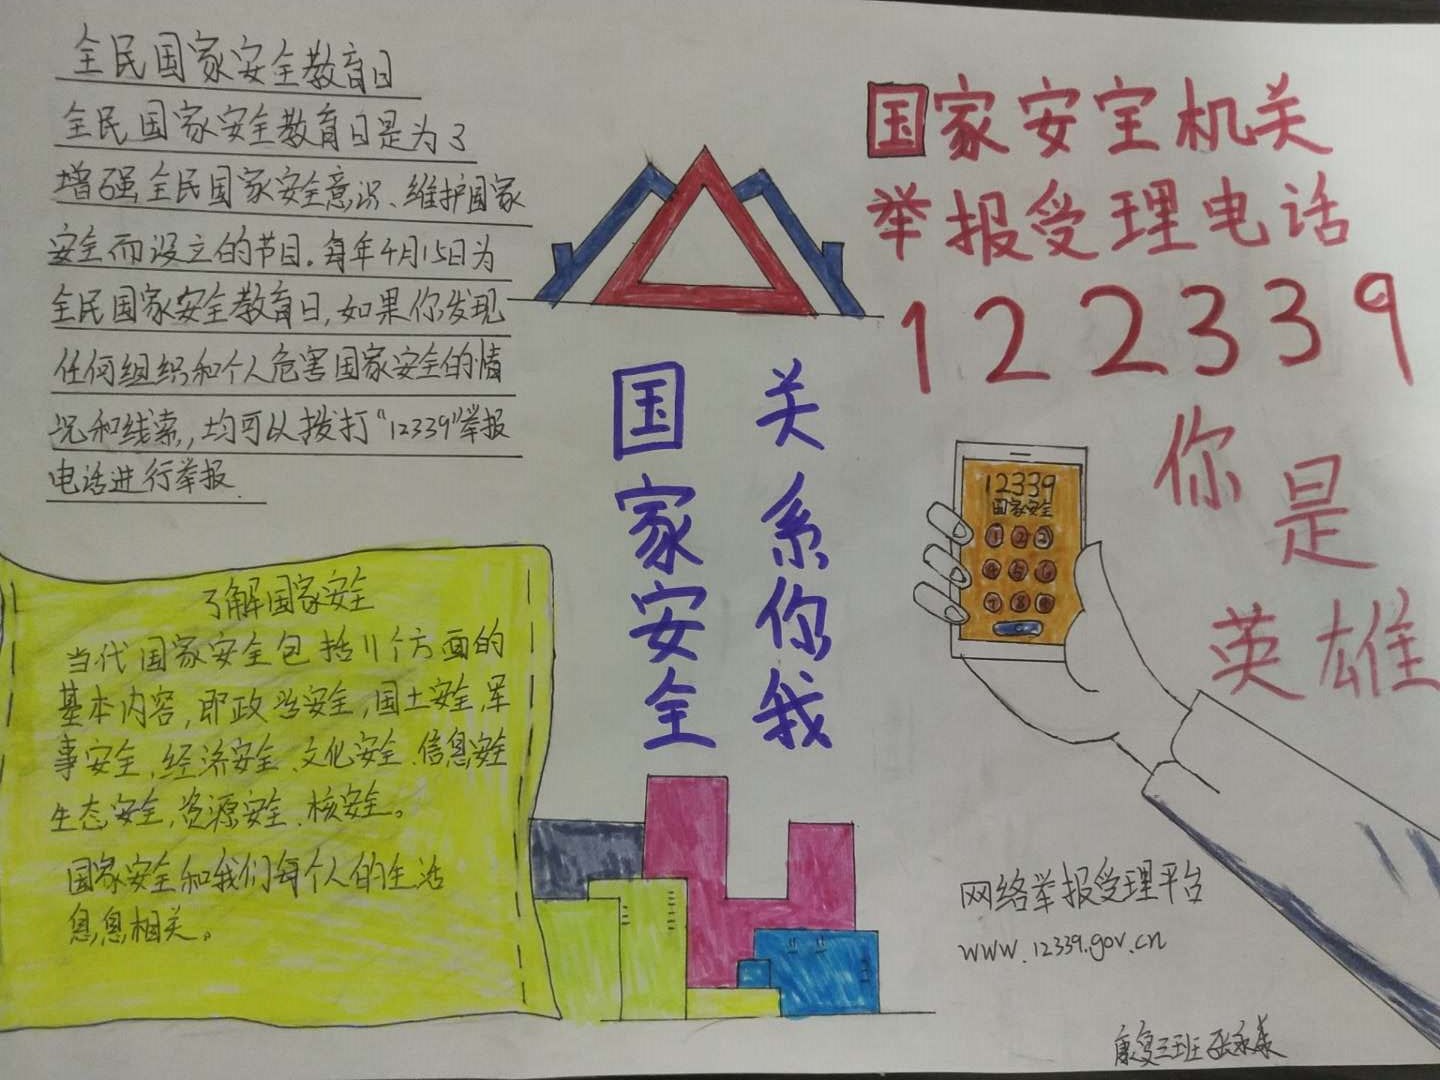 全民国家安全教育日
全民国家安全教育日是为了
增强全民国家安全意识、维护国家
安全而设立的节日。每年4月15日为
全民国家安全教育日,如果你发现
任何组织和个人危害国家安全的情
况和线索,均可以拨打“12339”举报
电话进行举报.
了解国家安全
当代国家安全包括11个方面的
基本内容,即政治安全,国土安全,军
事安全,经济安全、文化安全、信息安全
生态安全,资源安全、核安全。
国家安全和我们每个人的生活
息息相关。
国家安全
关系你我
国家安全机关
举报受理电话
122339
你是
英雄
12339
国家安全
1 2 3
4 5 6
7 8 9
网络举报受理平台
www.12339.gov.cn
康复三班